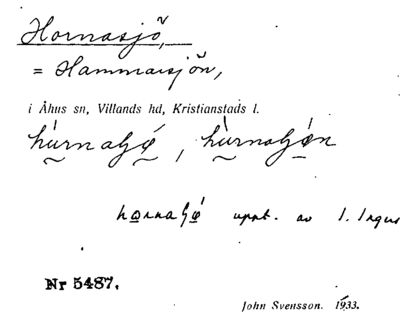 Hornasjö,
= Hammarsjön,
i Åhus sn, Villands hd, Kristianstads l.
hùrnaʃǿ, hùrnaʃǿn
hornaʃǿ uppt. av I. Ingers
Nr 5487.
John Svensson. 1933.